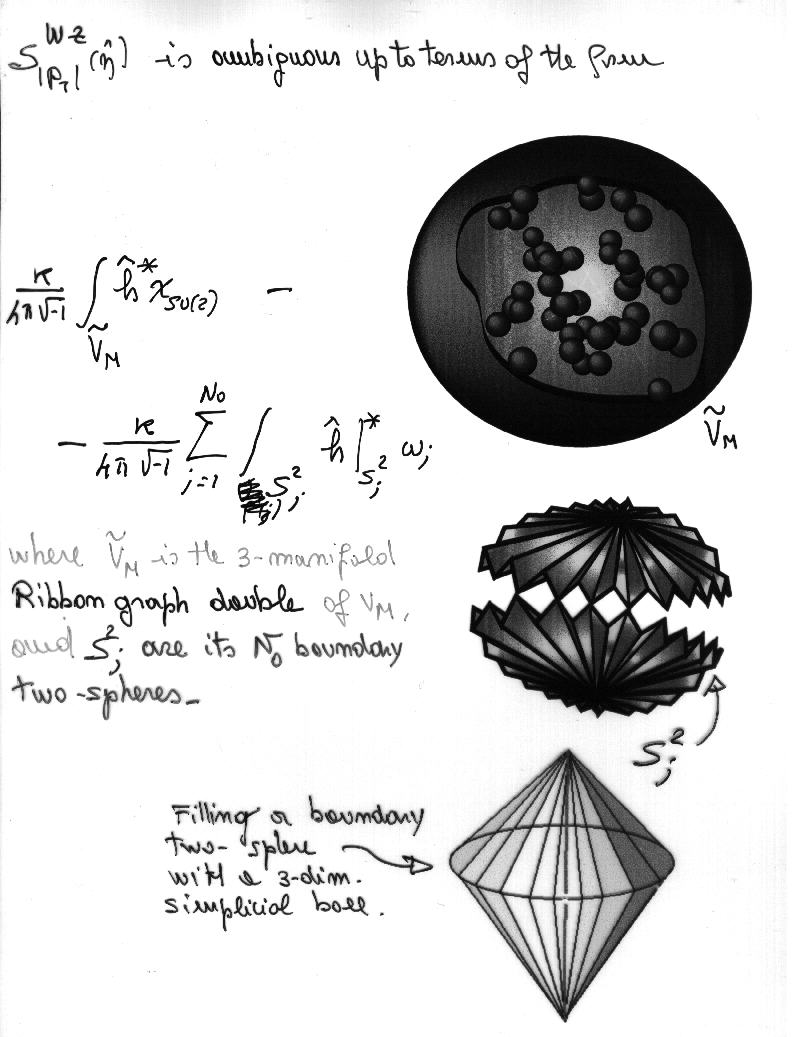 S^{WZ}_{|P_T|}(η̂) is ambiguous up to terms of the form
κ/(4π√-1) ∫_{Ṽ_M} ĥ* χ_{SU(2)} −
− κ/(4π√-1) Σ_{j=1}^{N_0} ∫_{S_j^2} ĥ|*_{S_j^2} ω_j
Ṽ_M
where Ṽ_M is the 3-manifold
Ribbon graph double of V_M,
and S_j^2 are its N_0 boundary
two-spheres_
S_j^2
Filling a boundary
two-sphere
with a 3-dim.
simplicial ball.